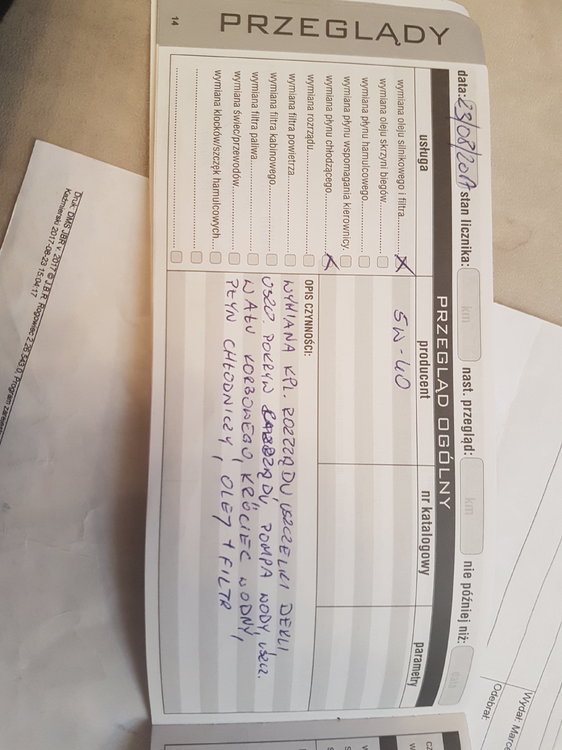 PRZEGLĄDY
14
data: 23/08/2017 stan licznika: km nast. przegląd: km nie później niż: data
PRZEGLĄD OGÓLNY
usługa producent nr katalogowy parametry
wymiana oleju silnikowego i filtra X 5W-40
wymiana oleju skrzyni biegów
wymiana płynu hamulcowego
wymiana płynu wspomagania kierownicy
wymiana płynu chłodzącego X
wymiana rozrządu
wymiana filtra powietrza
wymiana filtra kabinowego
wymiana filtra paliwa
wymiana świec/przewodów
wymiana klocków/szczęk hamulcowych
OPIS CZYNNOŚCI:
WYMIANA KPL. ROZRZĄDU USZCZELKI DEKLI
USZCZ. POKRYW ROZRZĄDU, POMPA WODY, USZCZ.
WAŁU KORBOWEGO, KRÓCIEC WODNY,
PŁYN CHŁODNICZY, OLEJ + FILTR
Druk: DMS JBR v. 2017 © J.B.R. Rogowiec
Kaźmierski 2017-08-23 15:04:17
Wydał: Marce
Odebrał: